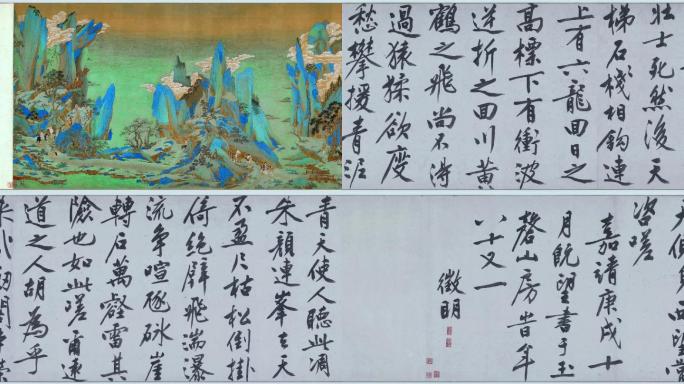 壮士死然後天
梯石棧相鈎連
上有六龍回日之
高標下有衝波
逆折之回川黄
鶴之飛尚不得
過猿猱欲度
愁攀援青泥
青天使人聽此凋
朱顔連峯去天
不盈尺枯松倒掛
倚絶壁飛湍瀑
流争喧豗砯崖
轉石萬壑雷其
險也如此嗟爾遠
道之人胡為乎
西望常
咨嗟
嘉靖庚戌十
月既望書于玉
磬山房旹年
八十又一
徵明